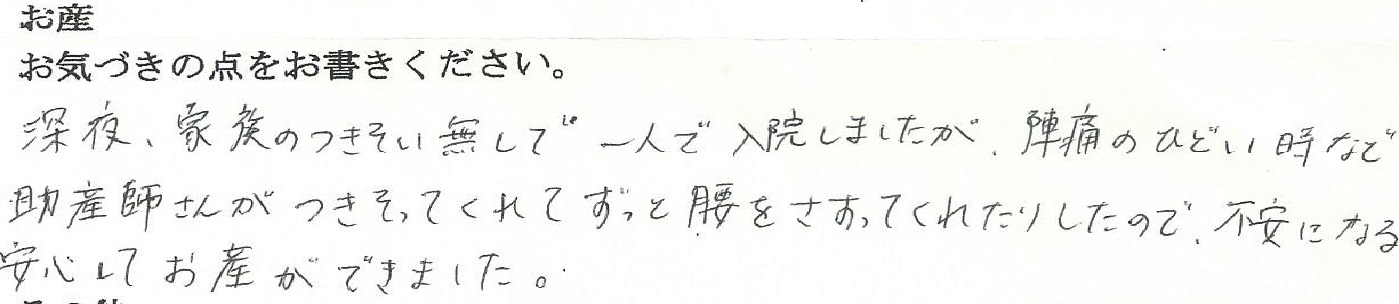 お産
お気づきの点をお書きください。
深夜、家族のつきそい無しで一人で入院しましたが、陣痛のひどい時など
助産師さんがつきそってくれてずっと腰をさすってくれたりしたので、不安になる
安心してお産ができました。